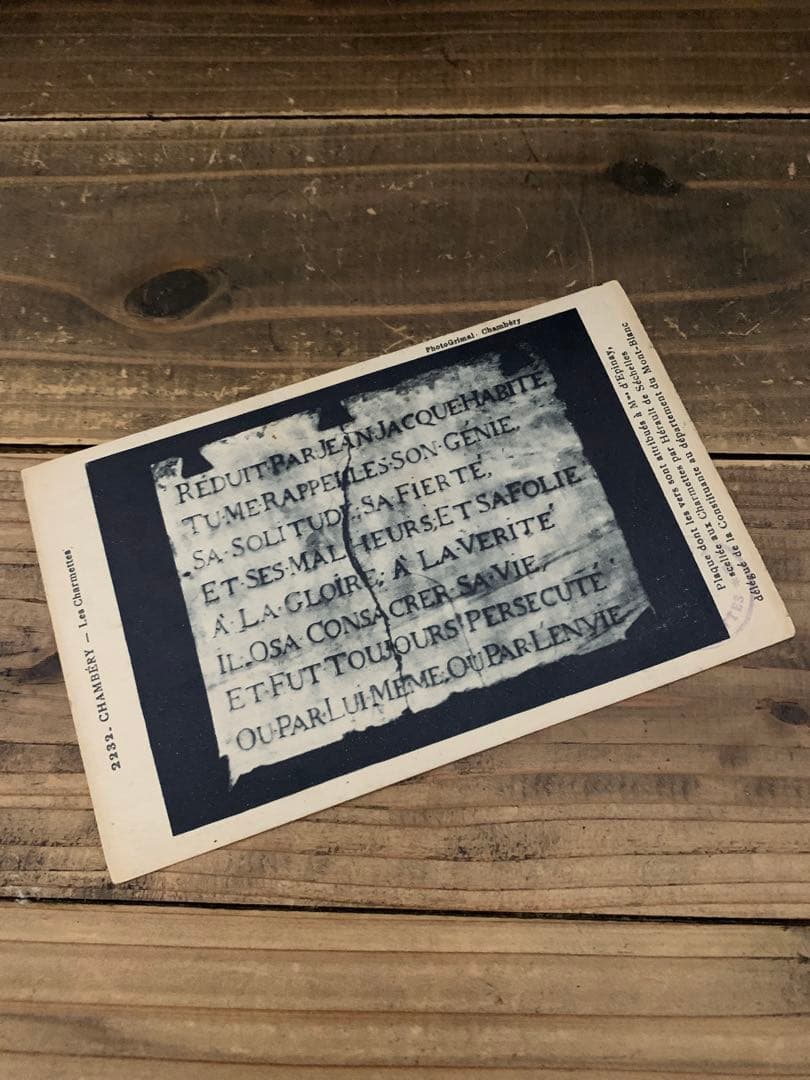 PhotoGrimal. Chambéry
RÉDUIT·PAR·JEAN·JACQUE HABITÉ
TU·ME·RAPPELLES·SON·GÉNIE,
SA·SOLITUDE, SA FIERTÉ,
ET·SES·MALHEURS·ET SA FOLIE
À·LA·GLOIRE, À LA·VERITÉ
IL·OSA CONSACRER SA·VIE,
ET·FUT TOUJOURS PERSECUTÉ
OU·PAR·LUI·MÊME·OU PAR·L'ENVIE
2232. CHAMBÉRY — Les Charmettes
Plaque dont les vers sont attribués à Mme d'Epinay,
scellée aux Charmettes par Hérault de Séchelles
délégué de la Constituante au département du Mont-Blanc